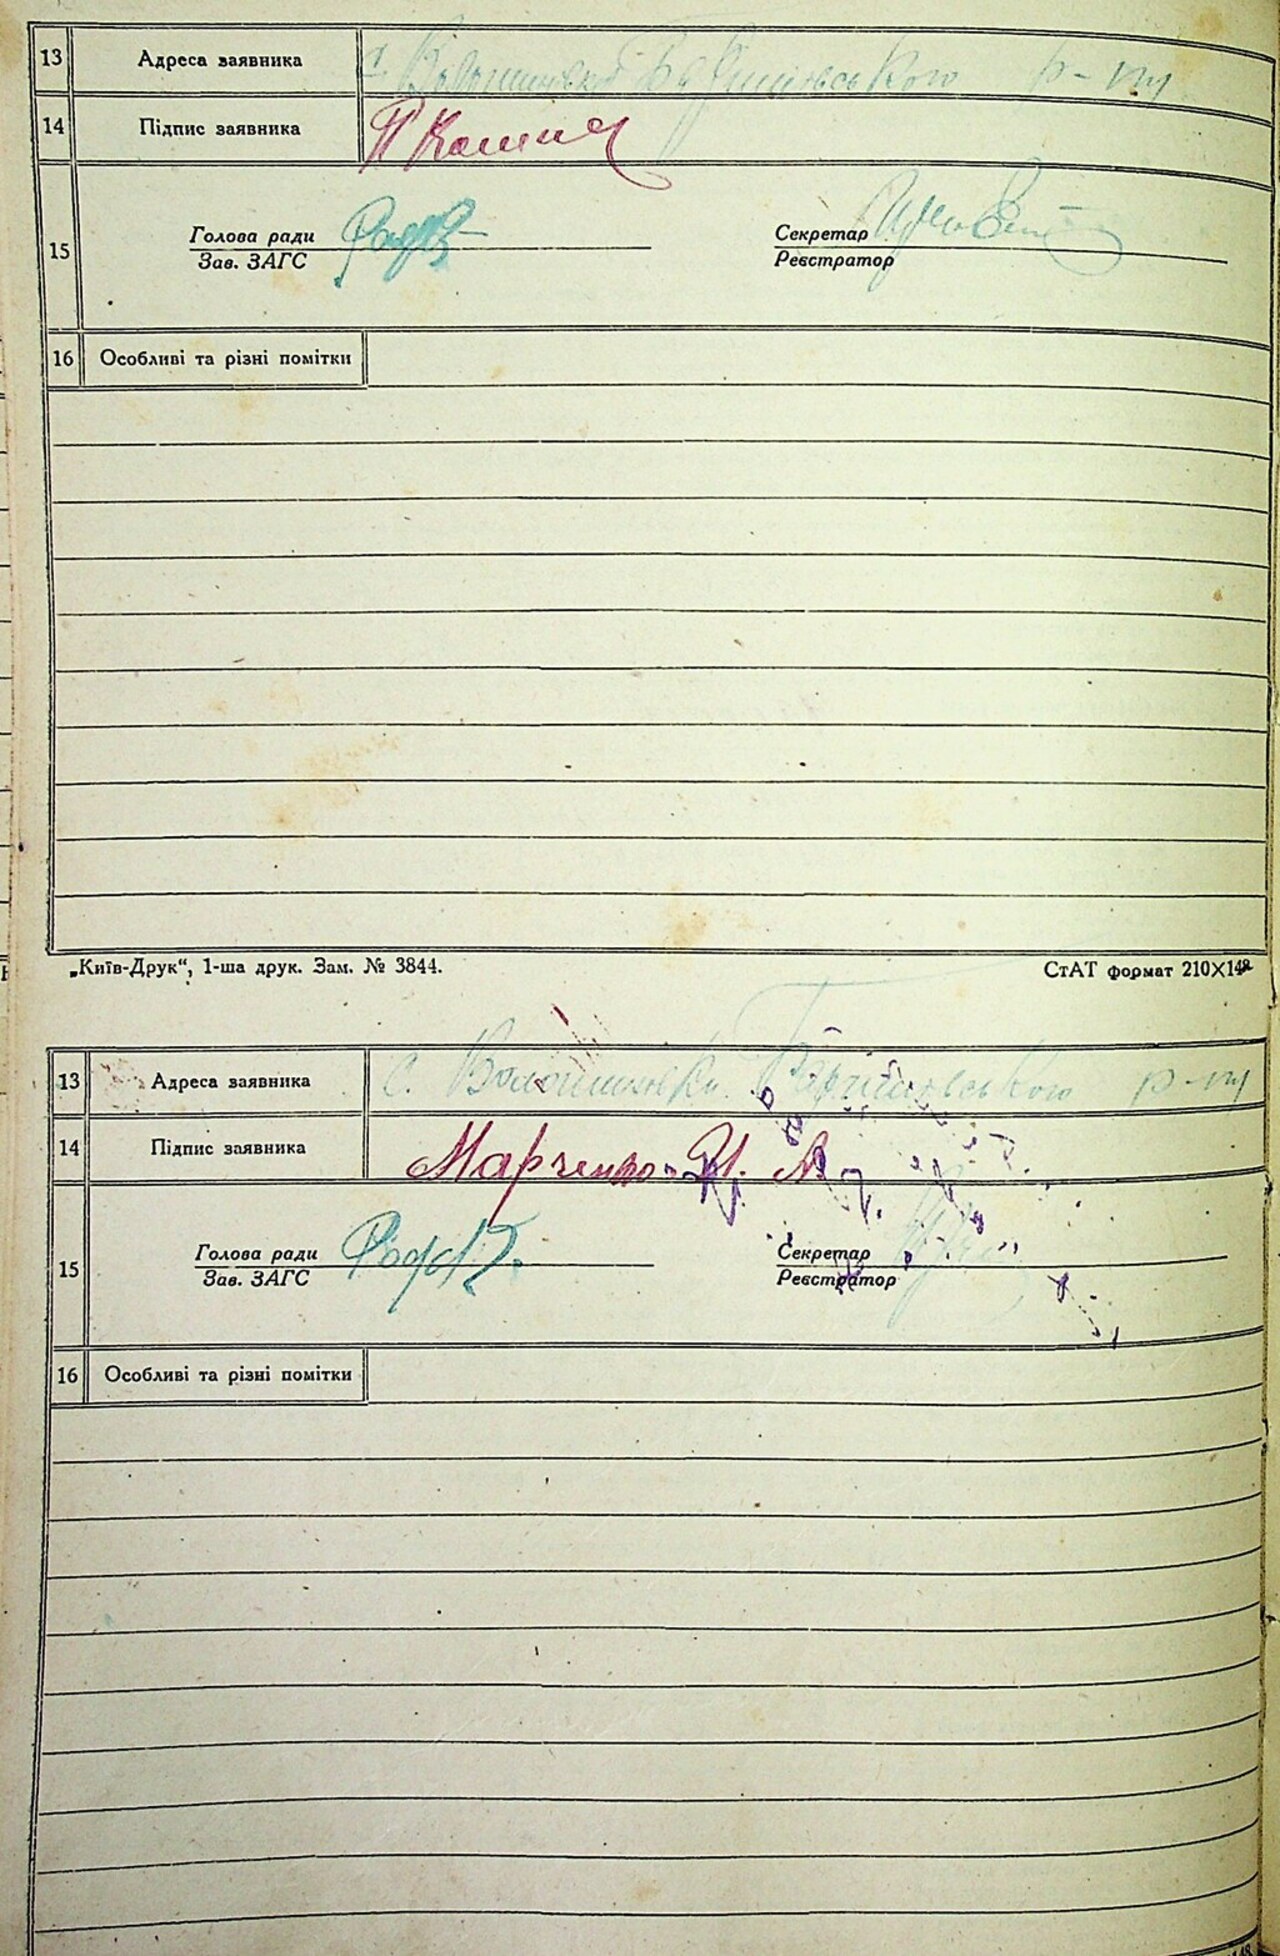 13 Адреса заявника с. Волошинівка Баришівського р-ну
14 Підпис заявника
15 Голова ради Секретар
Зав. ЗАГС Реєстратор
16 Особливі та різні помітки
„Київ-Друк“, 1-ша друк. Зам. № 3844. СтАТ формат 210X148
13 Адреса заявника с. Волошинівка Баришівського р-ну
14 Підпис заявника Марченко
15 Голова ради Секретар
Зав. ЗАГС Реєстратор
16 Особливі та різні помітки